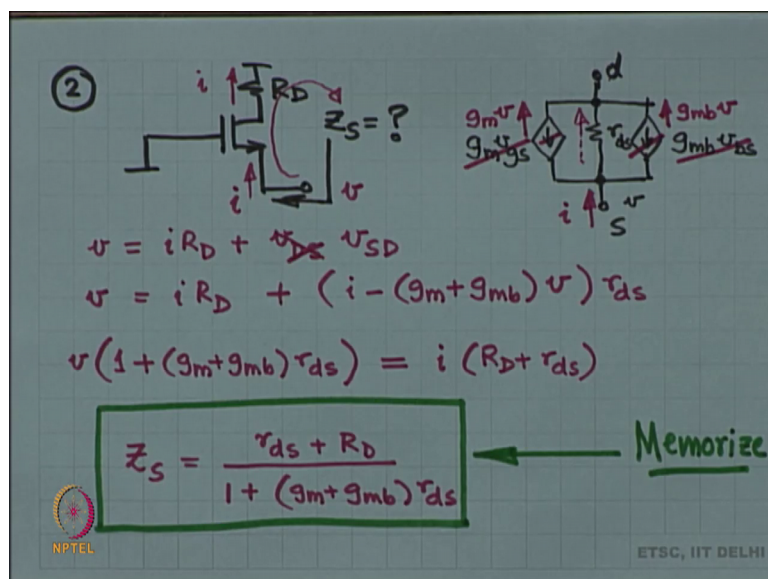 ②
i
R_D
Z_S = ?
i
v
d
g_m v
g_m v_gs
r_ds
g_mb v
g_mb v_bs
i
S
v
v = i R_D + v_DS v_SD
v = i R_D + (i - (g_m + g_mb) v) r_ds
v (1 + (g_m + g_mb) r_ds) = i (R_D + r_ds)
Z_S = (r_ds + R_D) / (1 + (g_m + g_mb) r_ds)
Memorize
NPTEL
ETSC, IIT DELHI